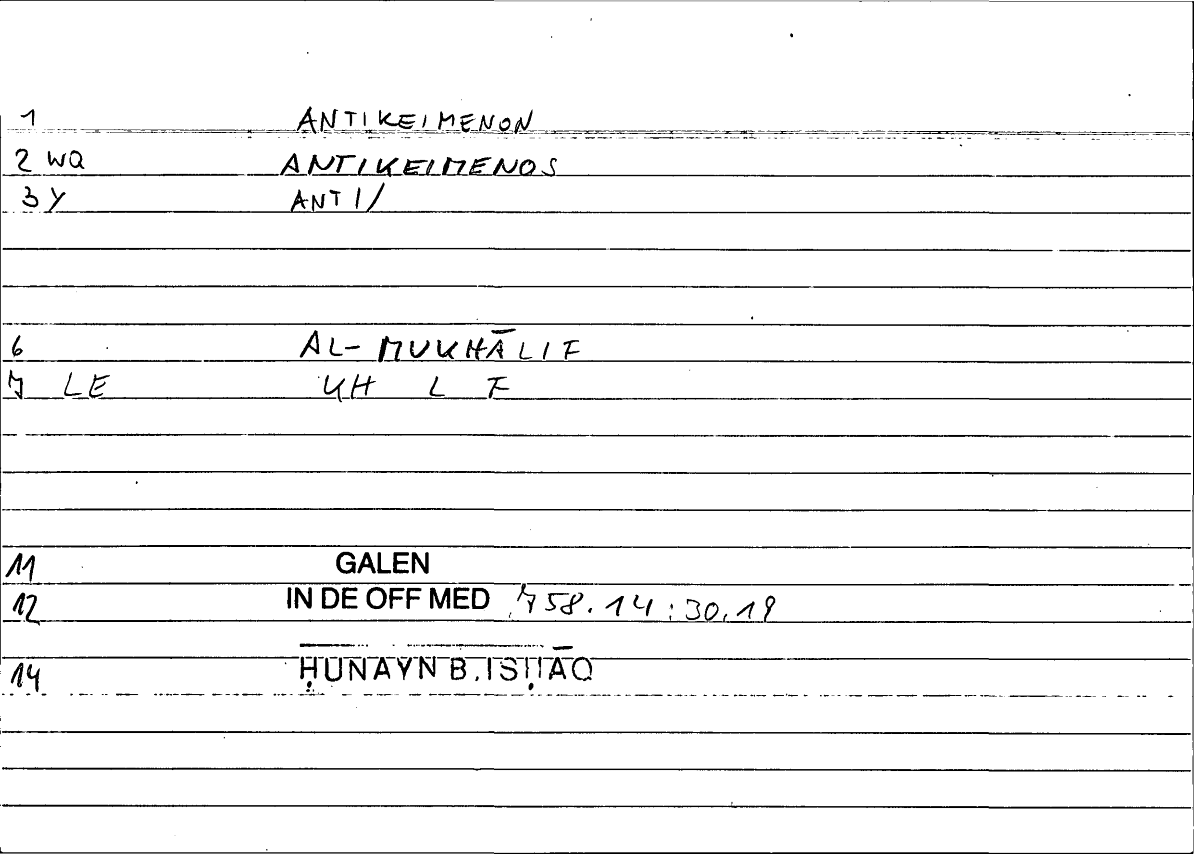 1 ANTIKEIMENON
2 WQ ANTIKEIMENOS
3 Y ANTI/
6 AL-MUKHĀLIF
7 LE KH L F
11 GALEN
12 IN DE OFF MED 758.14:30.19
14 ḤUNAYN B. ISḤĀQ